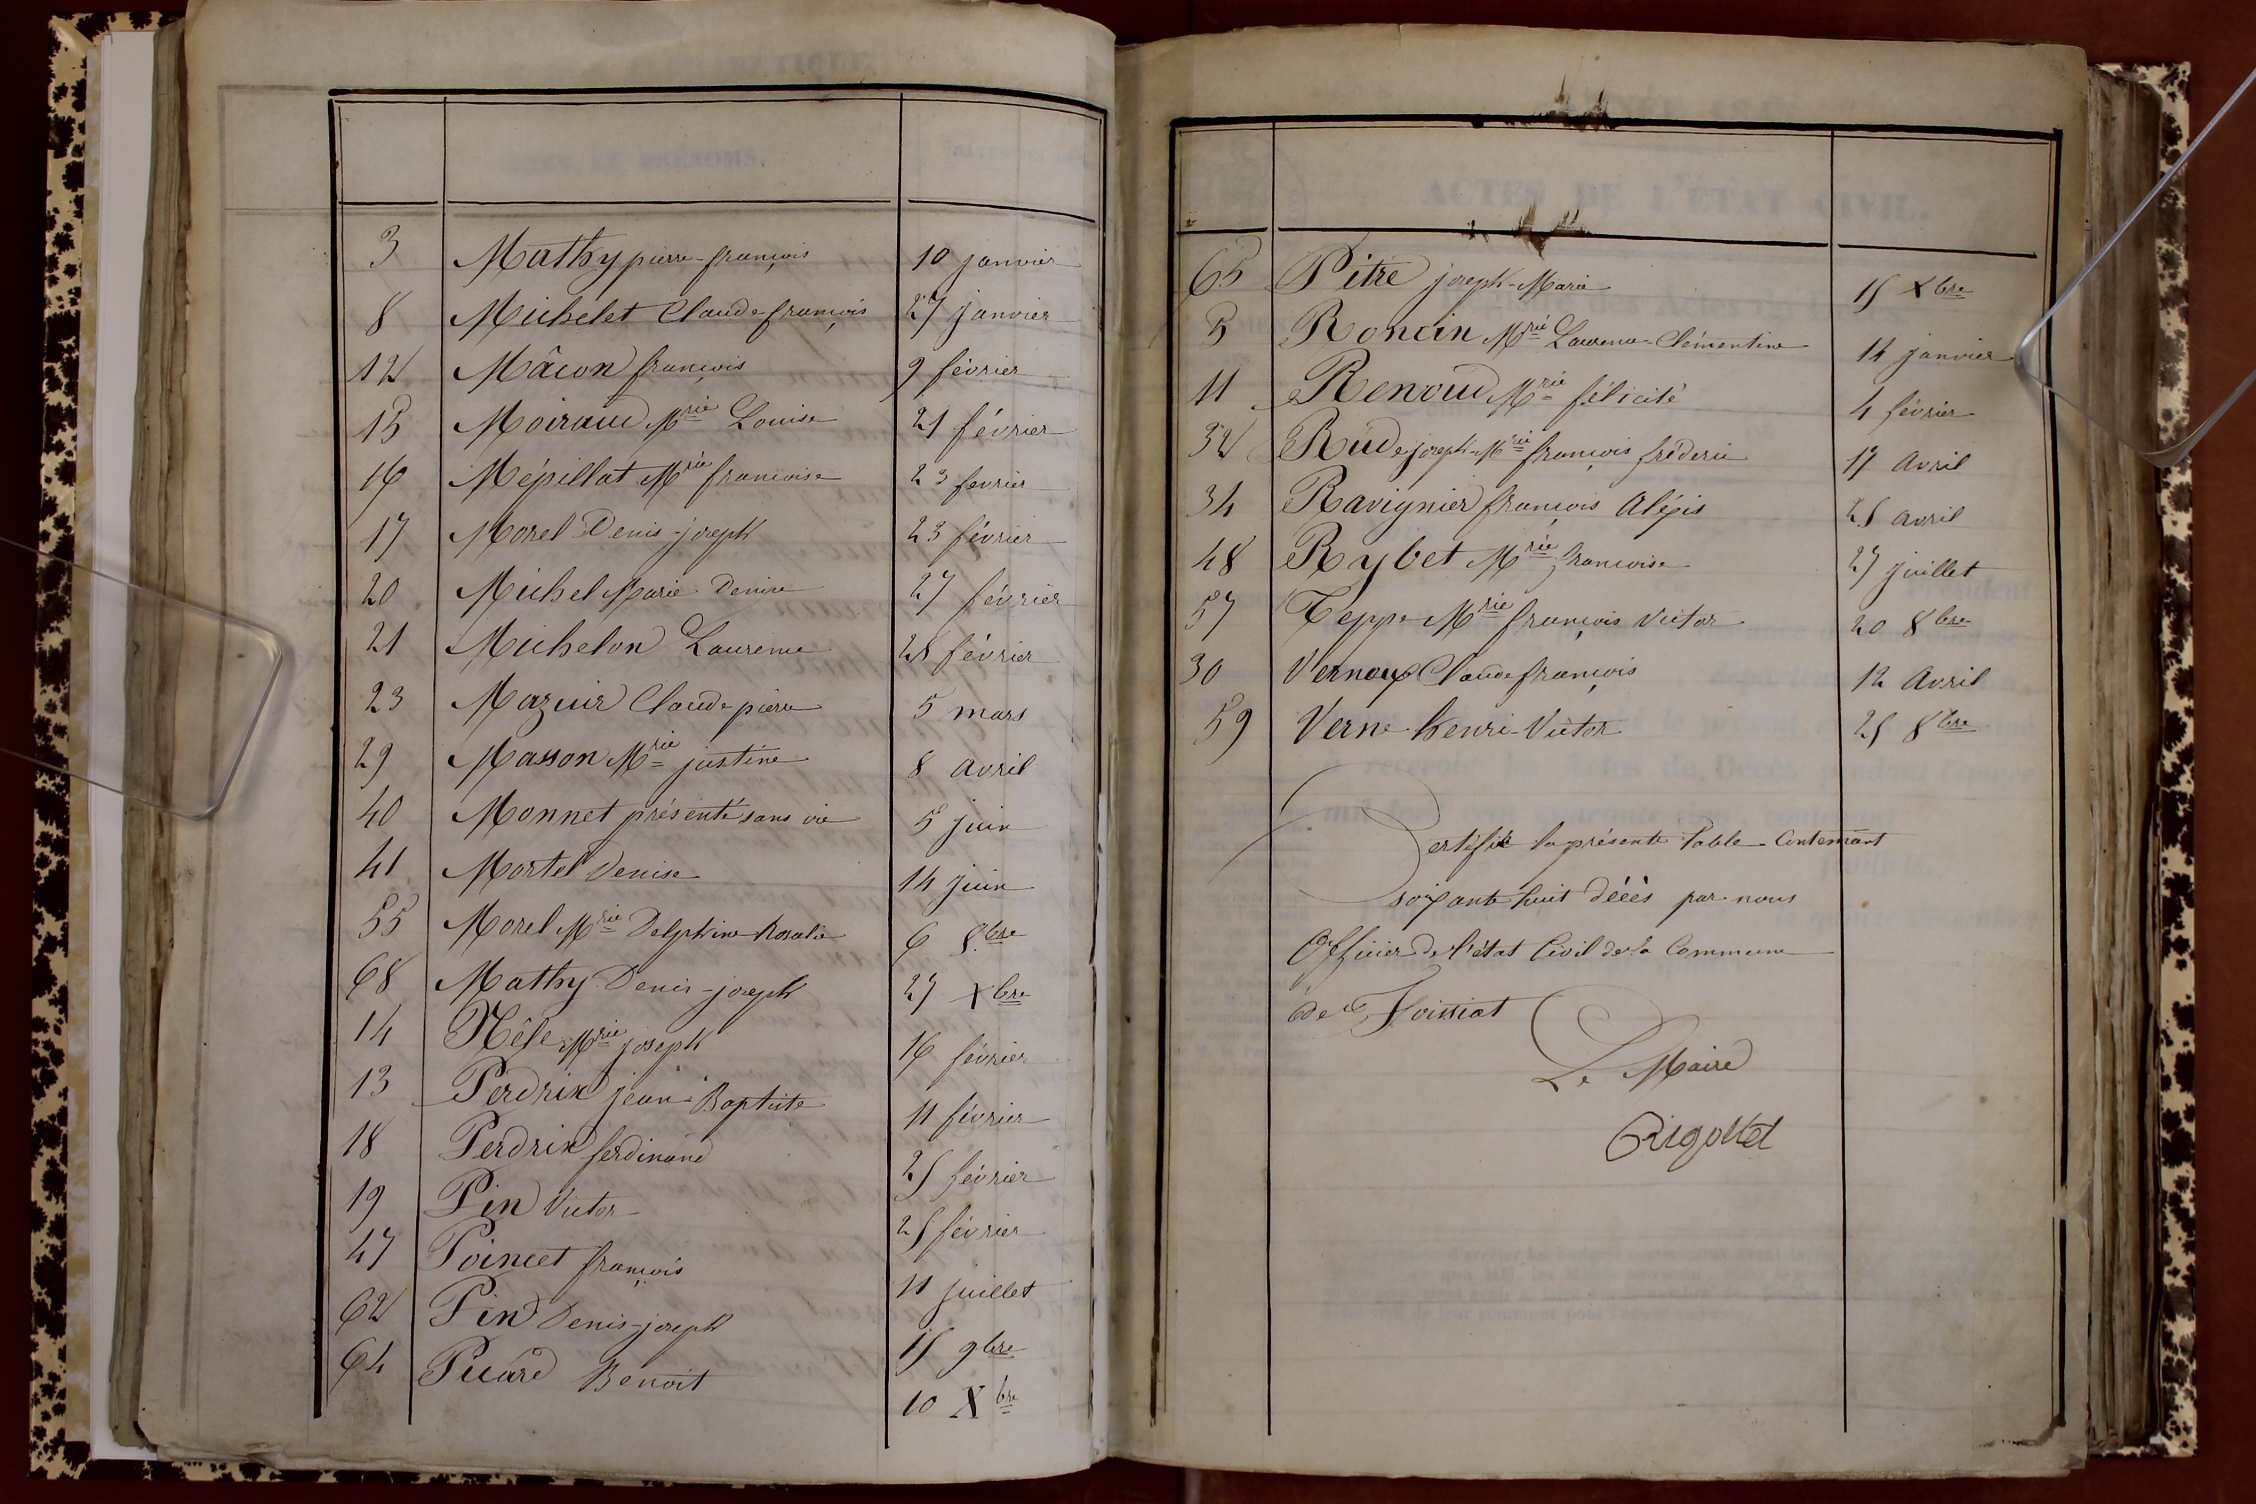 3 Mathy pierre-françois 10 janvier
8 Michelet Claude françois 27 janvier
12 Mâcon françois 9 février
15 Moiraud Mrie Louise 21 février
16 Mépillat Mrie francoise 23 fevrier
17 Morel Denis-joseph 23 février
20 Michel Marie Denise 27 février
21 Michelon Laurence 28 février
23 Mazuir Claude pierre 5 mars
29 Masson Mrie justine 8 avril
40 Monnet présenté sans vie 5 juin
41 Mortel Denise 14 juin
55 Morel Mrie Delphine Rosalie 6 8.bre
68 Mathy Denis-joseph 27 Xbre
14 Nêle Mrie joseph 16 février
13 Perdrix jean-Baptiste 11 février
18 Perdrix ferdinand 25 février
19 Pin Victor 25 février
47 Poincet françois 11 juillet
62 Pin Denis-joseph 15 9bre
64 Picard Benoit 10 Xbre
65 Pitre joseph-Marie 15 Xbre
5 Roncin Mrie Laurence-Clémentine 14 janvier
11 Renoud Mrie félicité 4 février
32 Rude joseph-Mrie françois fréderic 17 Avril
34 Ravignier françois Aléxis 25 avril
48 Rybet Mrie francoise 27 juillet
57 Teppe Mrie françois Victor 20 8bre
30 Vernoux Claude françois 12 Avril
59 Verne henri-Victor 25 8bre
Certifié la présente table contenant
soixante huit décès par nous
Officier de l'état Civil de la Commune
de Foissiat
Le Maire
Rigollet
ACTES DE L'ÉTAT CIVIL.